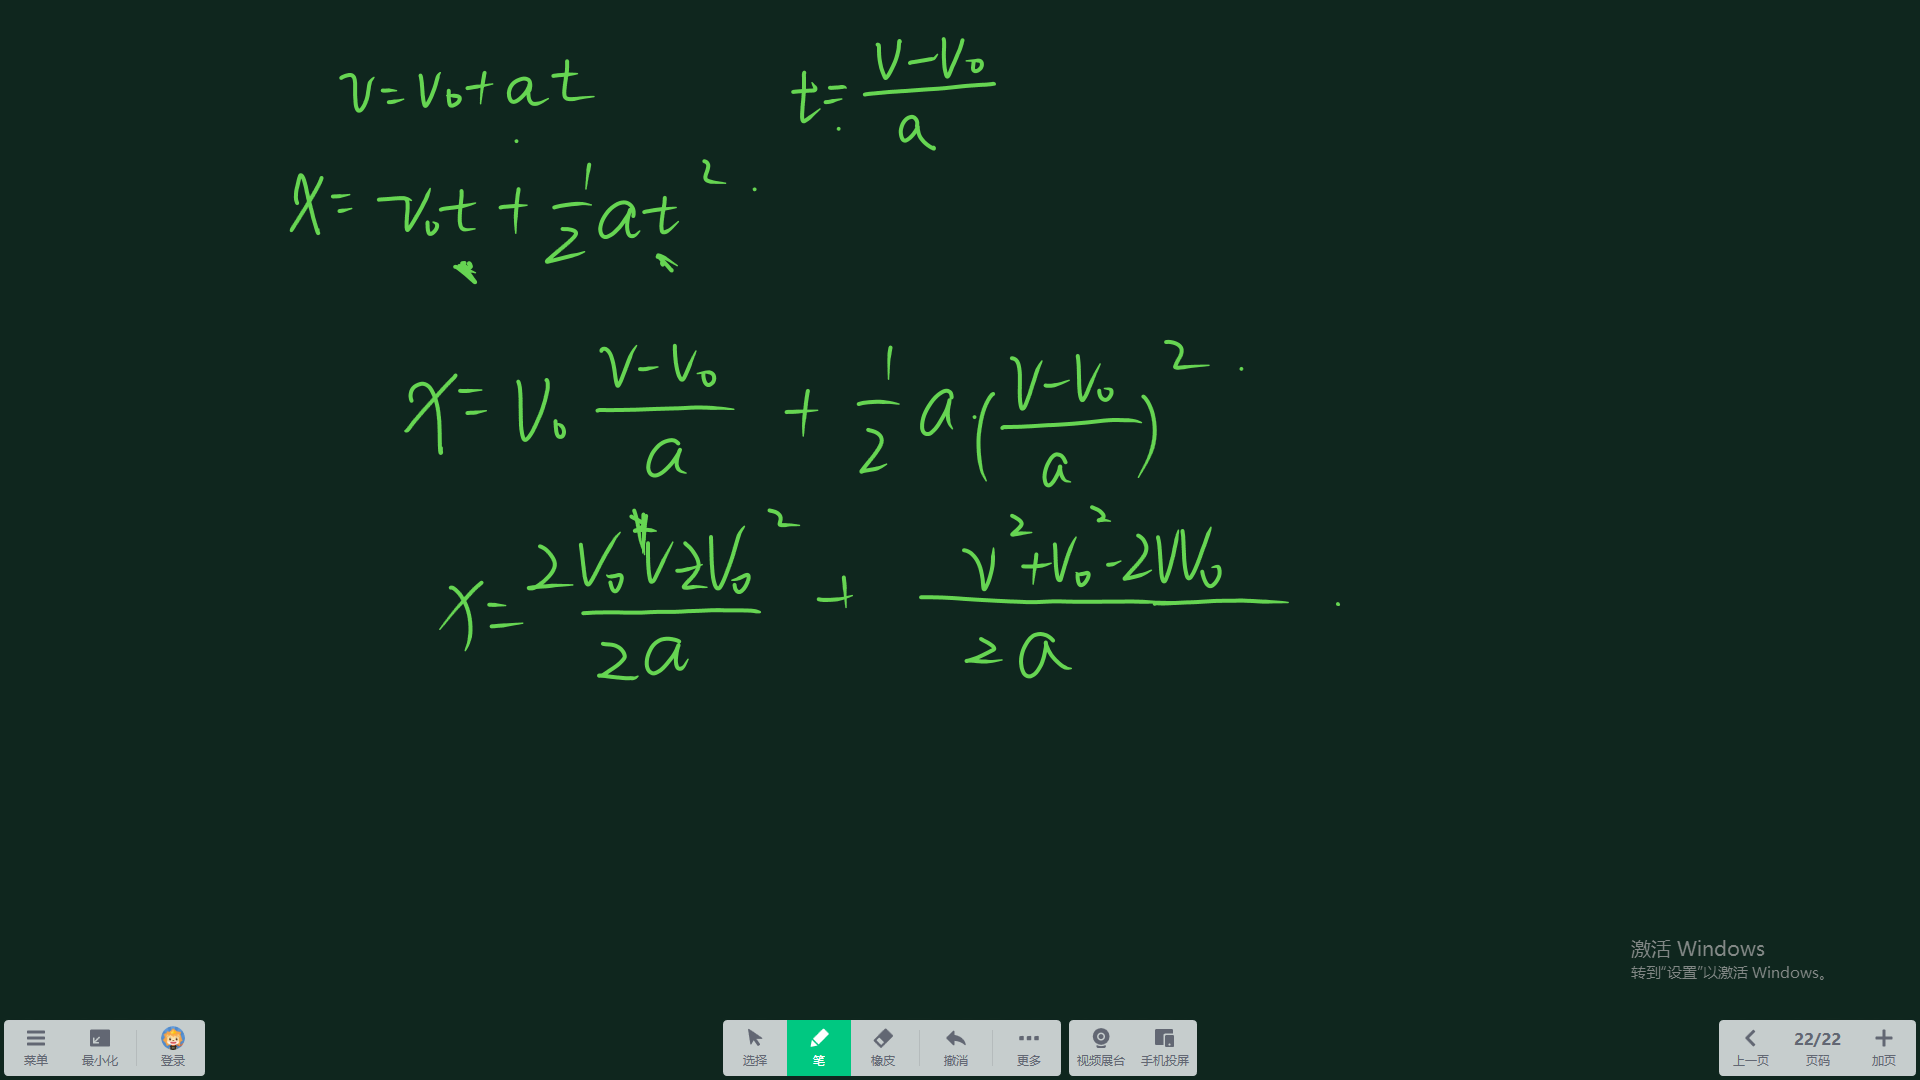 v=v₀+at t=(v-v₀)/a
x=v₀t+½at²
x=v₀ (v-v₀)/a + ½a·((v-v₀)/a)²
x=(2v₀v-2v₀²)/2a + (v²+v₀²-2vv₀)/2a
激活 Windows
转到“设置”以激活 Windows。
菜单 最小化 登录 选择 笔 橡皮 撤消 更多 视频展台 手机投屏 上一页 22/22 页码 加页